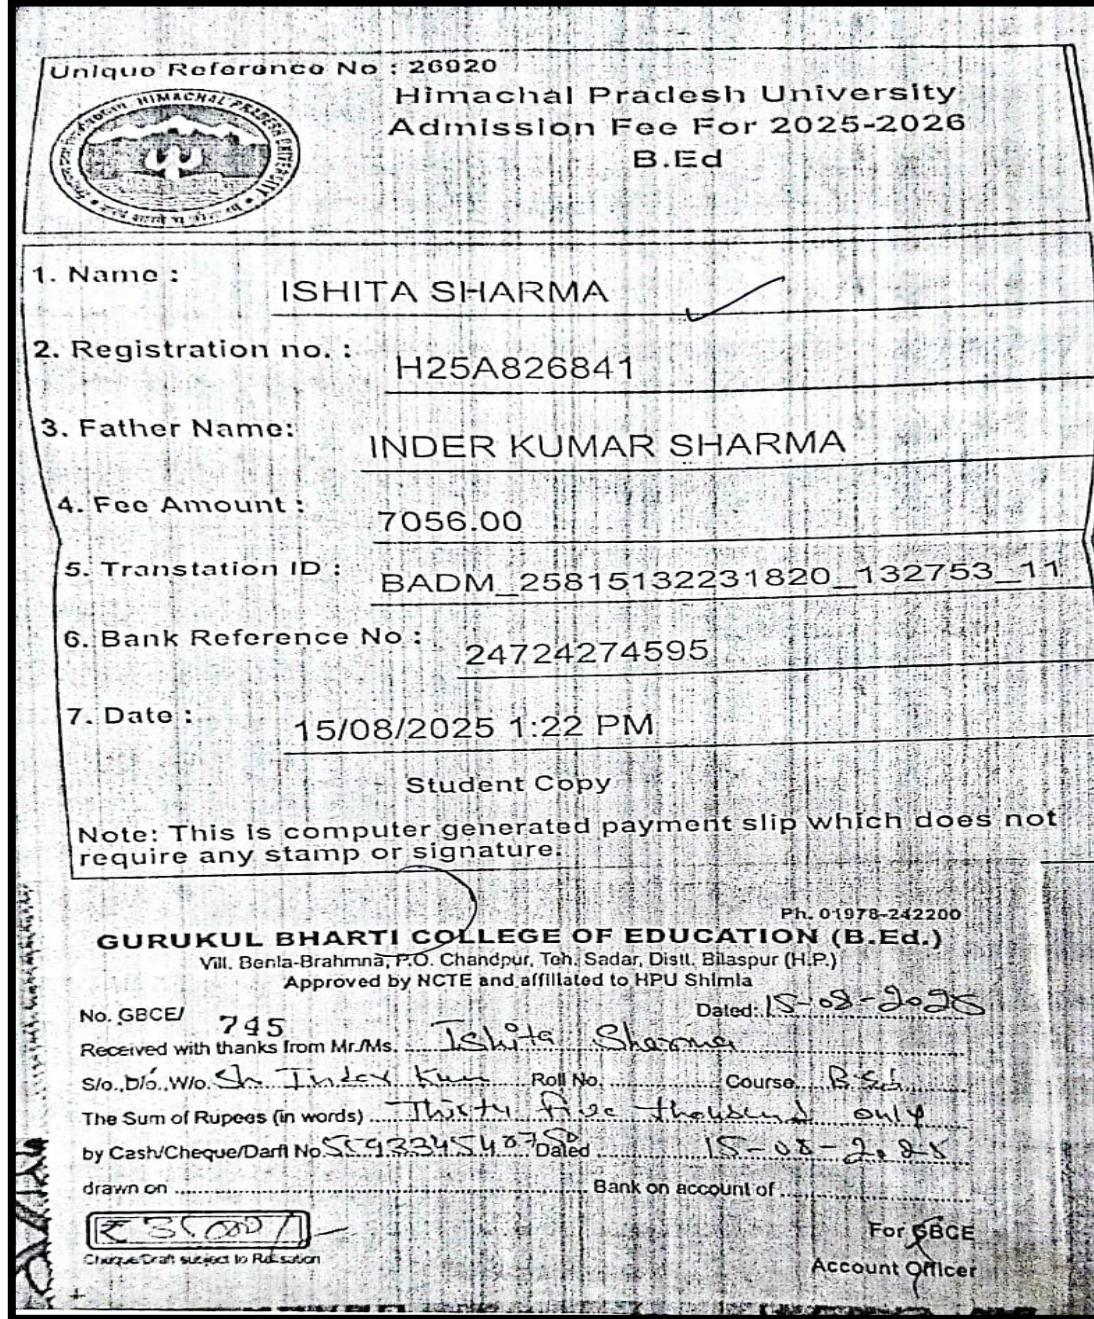 Unique Reference No : 26920
HIMACHAL PRADESH UNIVERSITY
Himachal Pradesh University
Admission Fee For 2025-2026
B.Ed
1. Name :
ISHITA SHARMA
2. Registration no. :
H25A826841
3. Father Name:
INDER KUMAR SHARMA
4. Fee Amount :
7056.00
5. Transtation ID :
BADM_25815132231820_132753_11
6. Bank Reference No :
24724274595
7. Date :
15/08/2025 1:22 PM
Student Copy
Note: This is computer generated payment slip which does not
require any stamp or signature.
Ph. 01978-242200
GURUKUL BHARTI COLLEGE OF EDUCATION (B.Ed.)
Vill. Benla-Brahmna, P.O. Chandpur, Teh. Sadar, Distt. Bilaspur (H.P.)
Approved by NCTE and affiliated to HPU Shimla
No. GBCE/ 745 Dated: 15-08-2025
Received with thanks from Mr./Ms. Ishita Sharma
S/o., D/o., W/o. Sh. Inder Kum Roll No. Course B.Ed.
The Sum of Rupees (in words) Thirty five thousand only
by Cash/Cheque/Darft No. Dated 15-08-2025
drawn on Bank on account of
₹ 35000/-
Cheque/Draft subject to Relisation
For GBCE
Account Officer